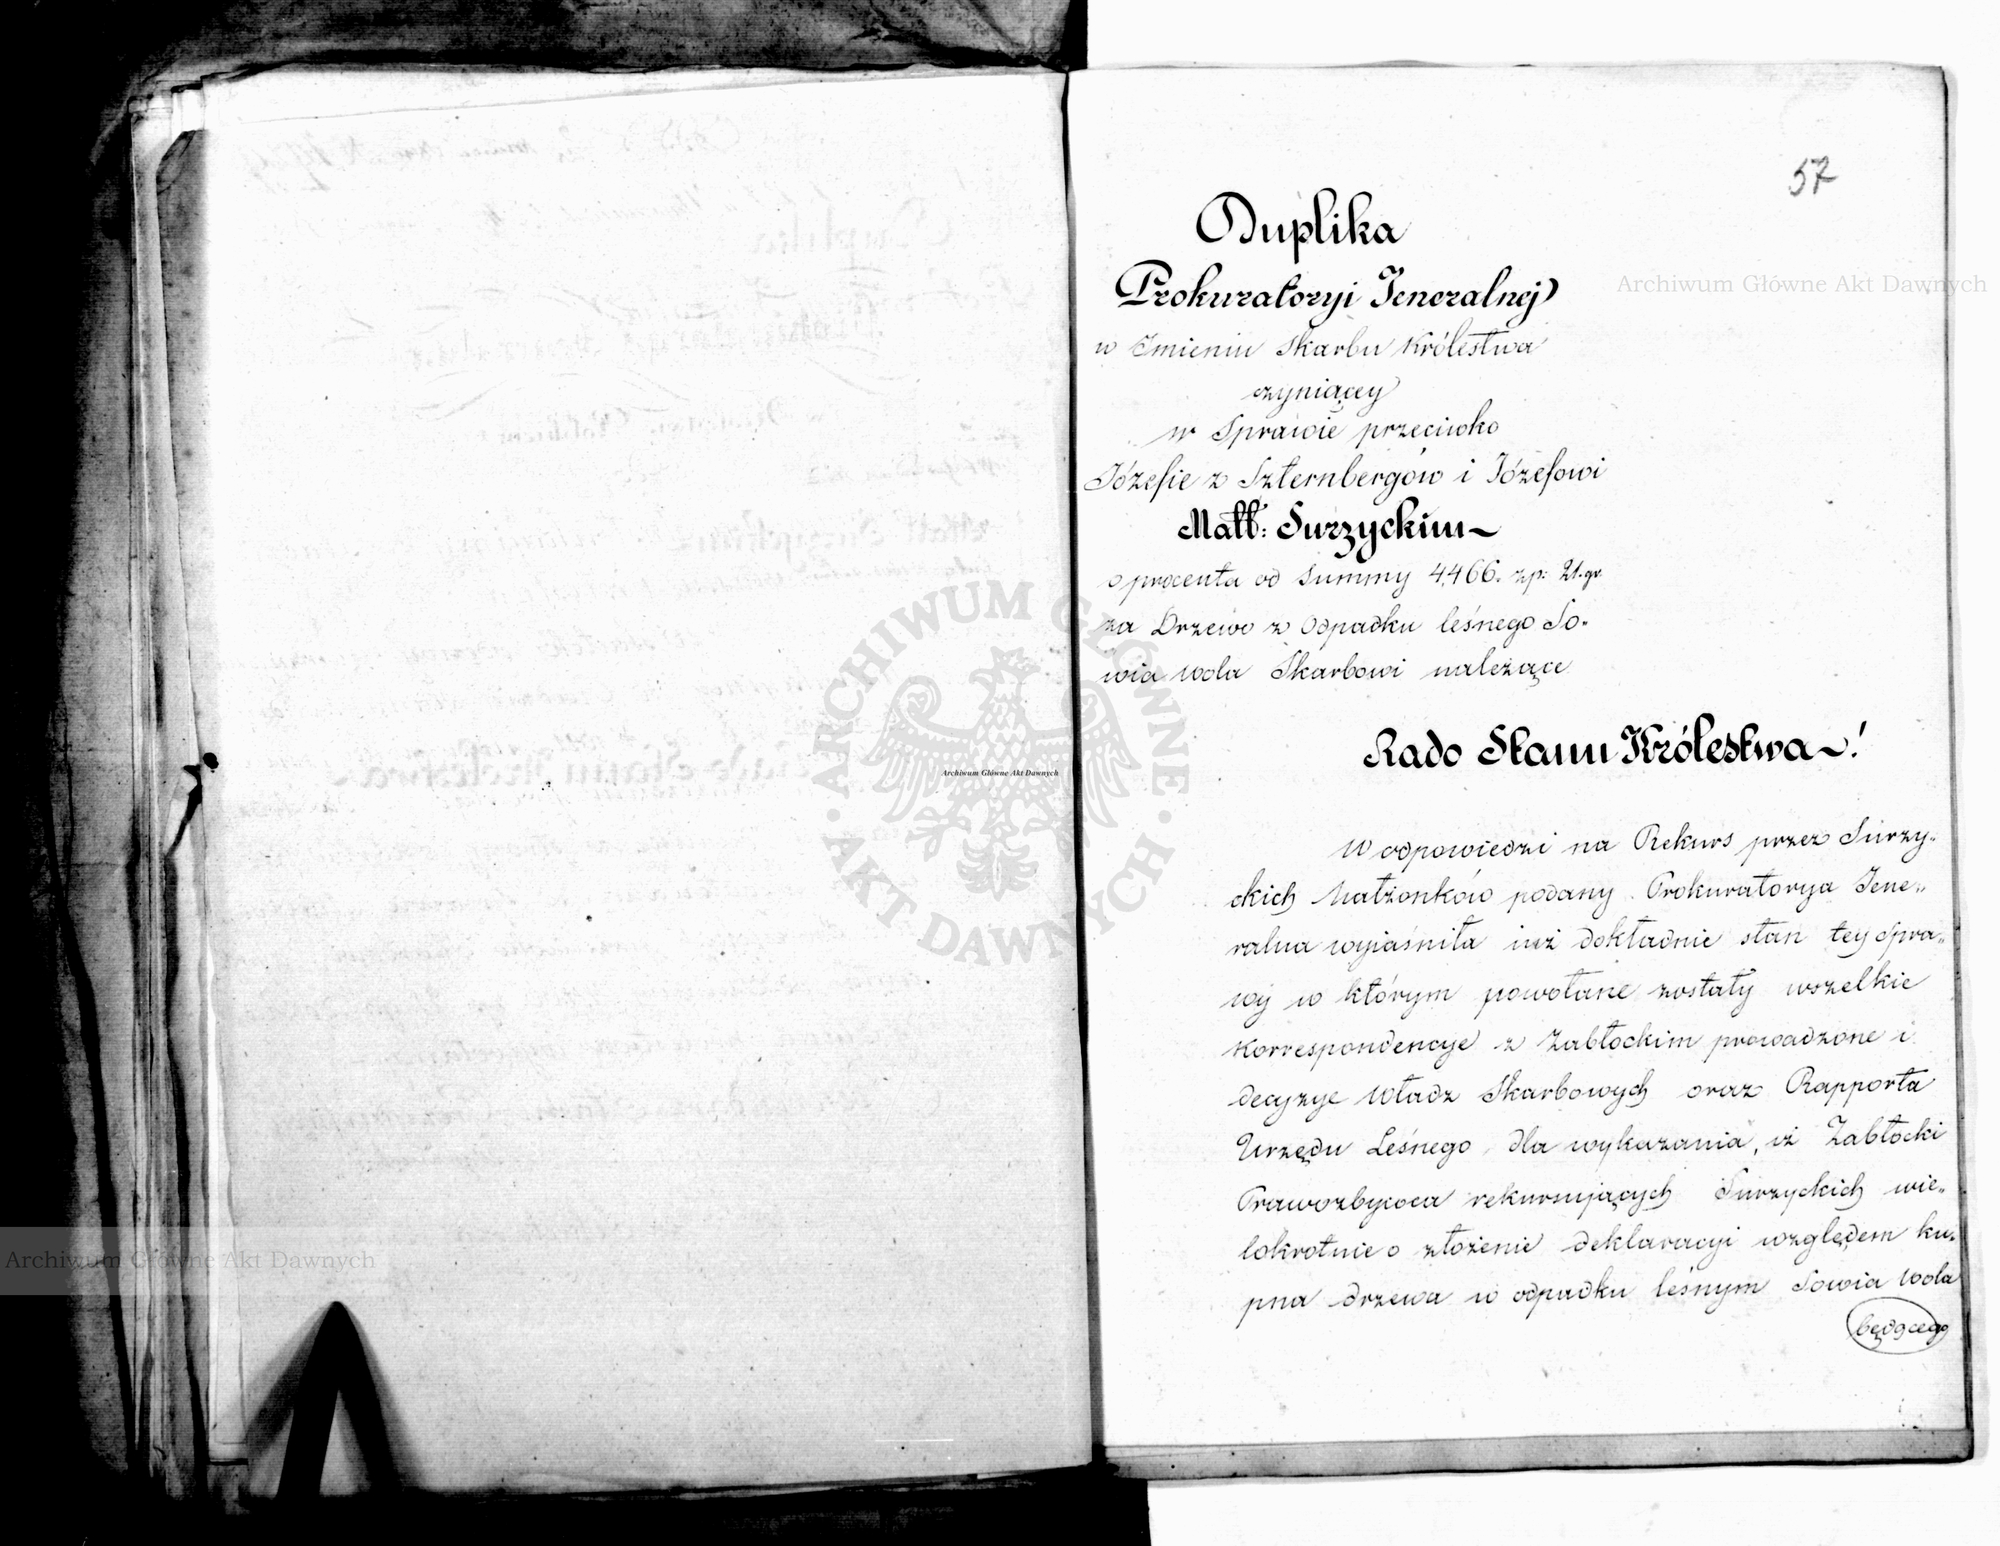 57
Duplika
Prokuratoryi Jeneralnej
w Imieniu Skarbu Królestwa
czyniącey
w Sprawie przeciwko
Józefie z Szternbergów i Józefowi
Małż: Surzyckim
o procenta od Summy 4,466. zp: 21. gr
za Drzewo z Odpadku leśnego So-
wia wola Skarbowi należące
Rado Stanu Królestwa!
W odpowiedzi na Rekurs przez Surzy-
ckich Małżonków podany Prokuratorya Jene-
ralna wyiaśniła iuż dokładnie stan tey Spra-
wy w którym powołane zostały wszelkie
Korrespondencye z Zabłockim prowadzone i
decyzye Władz Skarbowych oraz Rapporta
Urzędu Leśnego, dla wykazania, iż Zabłocki
Prawozbywca rekursujących Surzyckich wie-
lokrotnie o złożenie deklaracyi względem ku-
pna drzewa w odpadku leśnym Sowia Wola
będącego
Archiwum Główne Akt Dawnych
Archiwum Główne Akt Dawnych
Archiwum Główne Akt Dawnych
ARCHIWUM GŁÓWNE AKT DAWNYCH